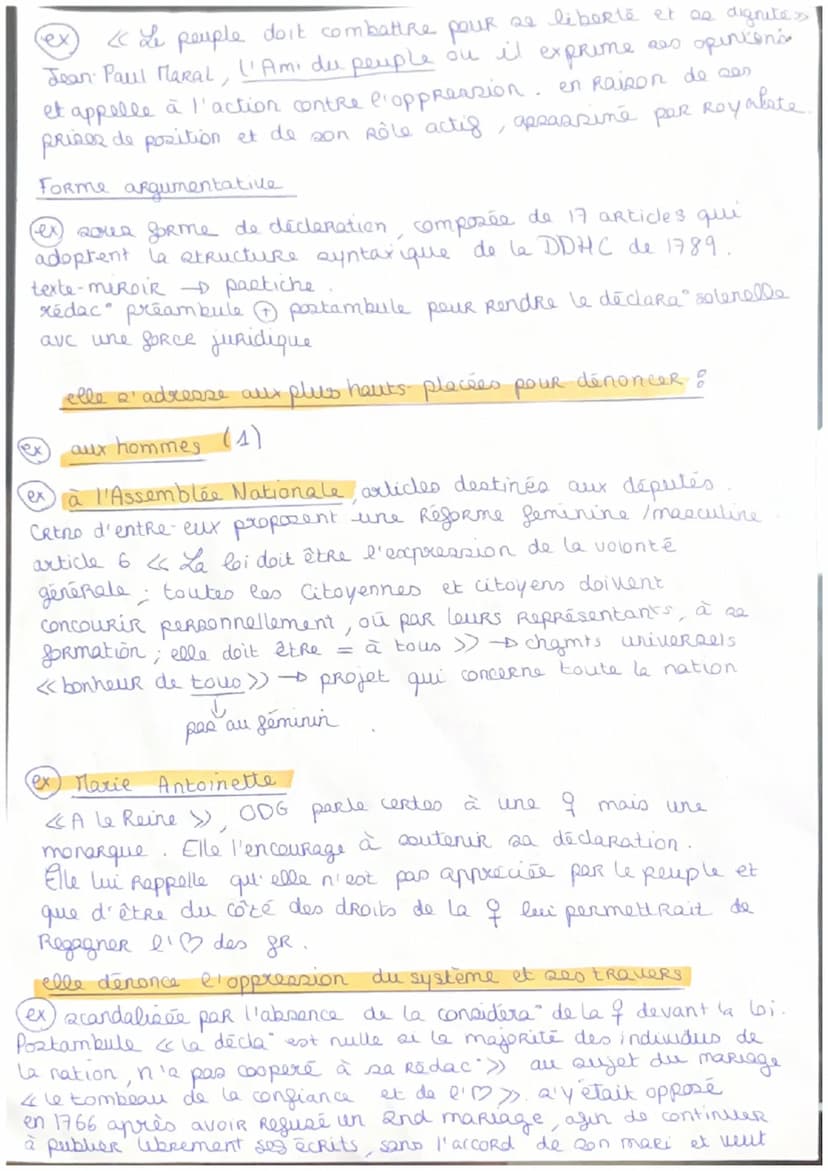 ex « Le peuple doit combattre pour sa liberté et sa dignité »
Jean-Paul Maral, l'Ami du peuple où il exprime ses opinions
et appelle à l'action contre l'oppression. en raison de ses
prises de position et de son rôle actif, assassiné par Royaliste.
Forme argumentative
ex sous forme de déclaration, composée de 17 articles qui
adoptent la structure syntaxique de la DDHC de 1789.
texte-miroir → pastiche.
rédac° préambule + postambule pour rendre la déclara° solenelle
avc une force juridique
elle s'adresse aux plus hauts-placées pour dénoncer :
ex aux hommes (1)
ex à l'Assemblée Nationale, articles destinés aux députés.
Crtns d'entre-eux proposent une réforme féminine/masculine.
article 6 « La loi doit être l'expression de la volonté
générale ; toutes les Citoyennes et citoyens doivent
concourir personnellement, où par leurs représentants, à sa
formation ; elle doit être = à tous » → chgmts universels
« bonheur de tous » → projet qui concerne toute la nation
↓
pas au féminin.
ex Marie Antoinette
« A la Reine », ODG parle certes à une ♀ mais une
monarque. Elle l'encourage à soutenir sa déclaration.
Elle lui rappelle qu'elle n'est pas appréciée par le peuple et
que d'être du côté des droits de la ♀ lui permettrait de
Regagner l'♡ des fR.
elle dénonce l'oppression du système et ses travers
ex scandalisée par l'absence de la considéra° de la ♀ devant la loi.
Postambule « la décla° est nulle si la majorité des individus de
la nation, n'a pas coopéré à sa rédac° » au sujet du mariage
« le tombeau de la confiance et de l'♡ ». s'y était opposé
en 1766 après avoir refusé un 2nd mariage, afin de continuer
à publier librement ses écrits, sans l'accord de son mari et veut